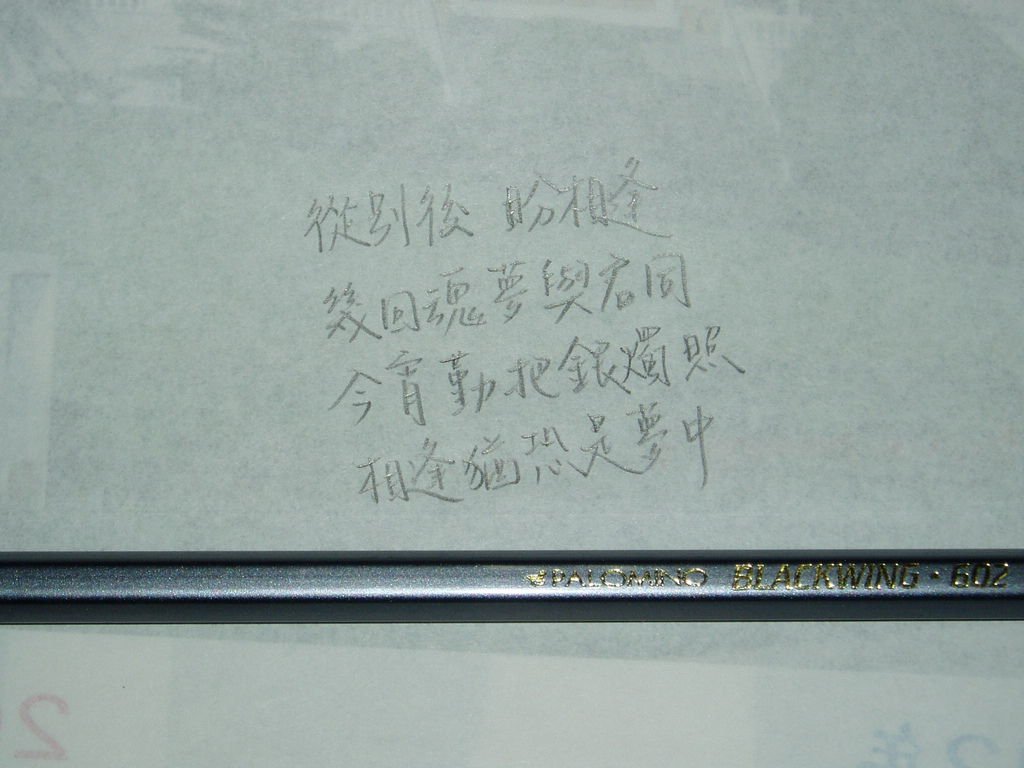 從別後 盼相逢
幾回魂夢與君同
今宵勤把銀燭照
相逢猶恐是夢中
PALOMINO BLACKWING · 602